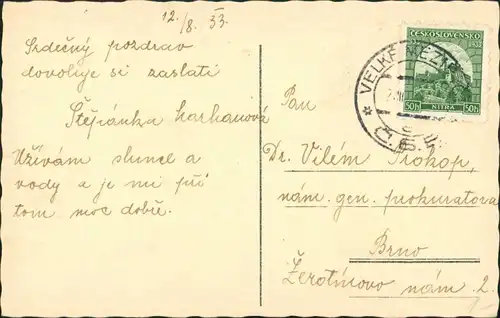 12./8. 33.
Srdečný pozdrav
dovoluje si zaslati
Štěpánka
Užívám slunce a
vody a je mi při
tom moc dobře.
ČESKOSLOVENSKO
1933
50h NITRA 50h
VELKÉ
Pan
Dr. Vilém Prokop,
nám. gen. prokuratora
Brno
Žerotínovo nám. 2.